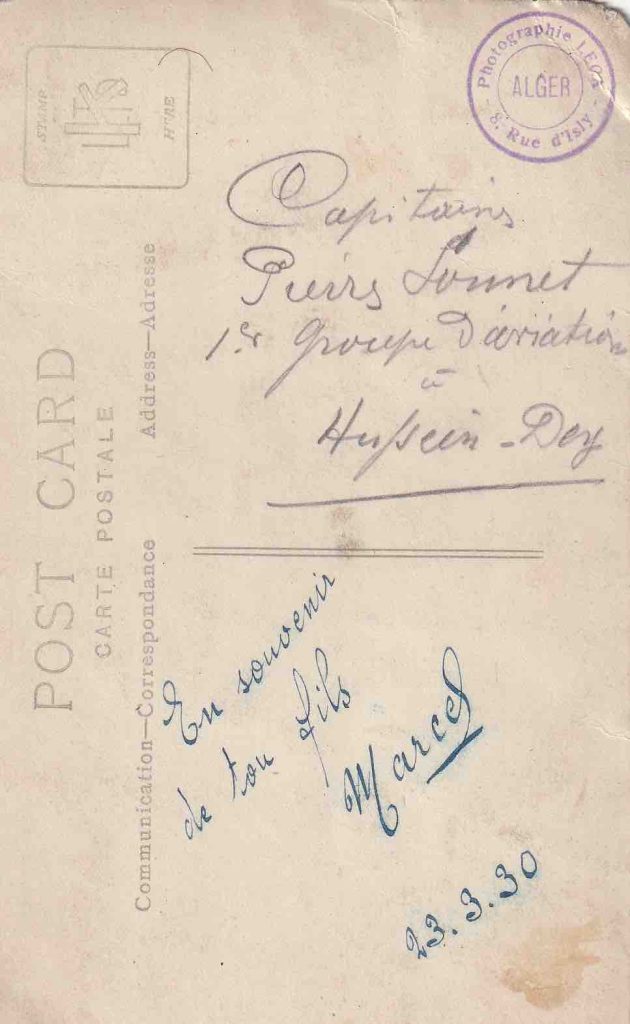 Photographie LECA
ALGER
8, Rue d'Isly
STAMP
HERE
POST CARD
CARTE POSTALE
Address—Adresse
Communication—Correspondance
Capitaine
Pierre Sonnet
1er Groupe D'aviation
à
Hussein-Dey
En souvenir
de ton fils
Marcel
23.3.30